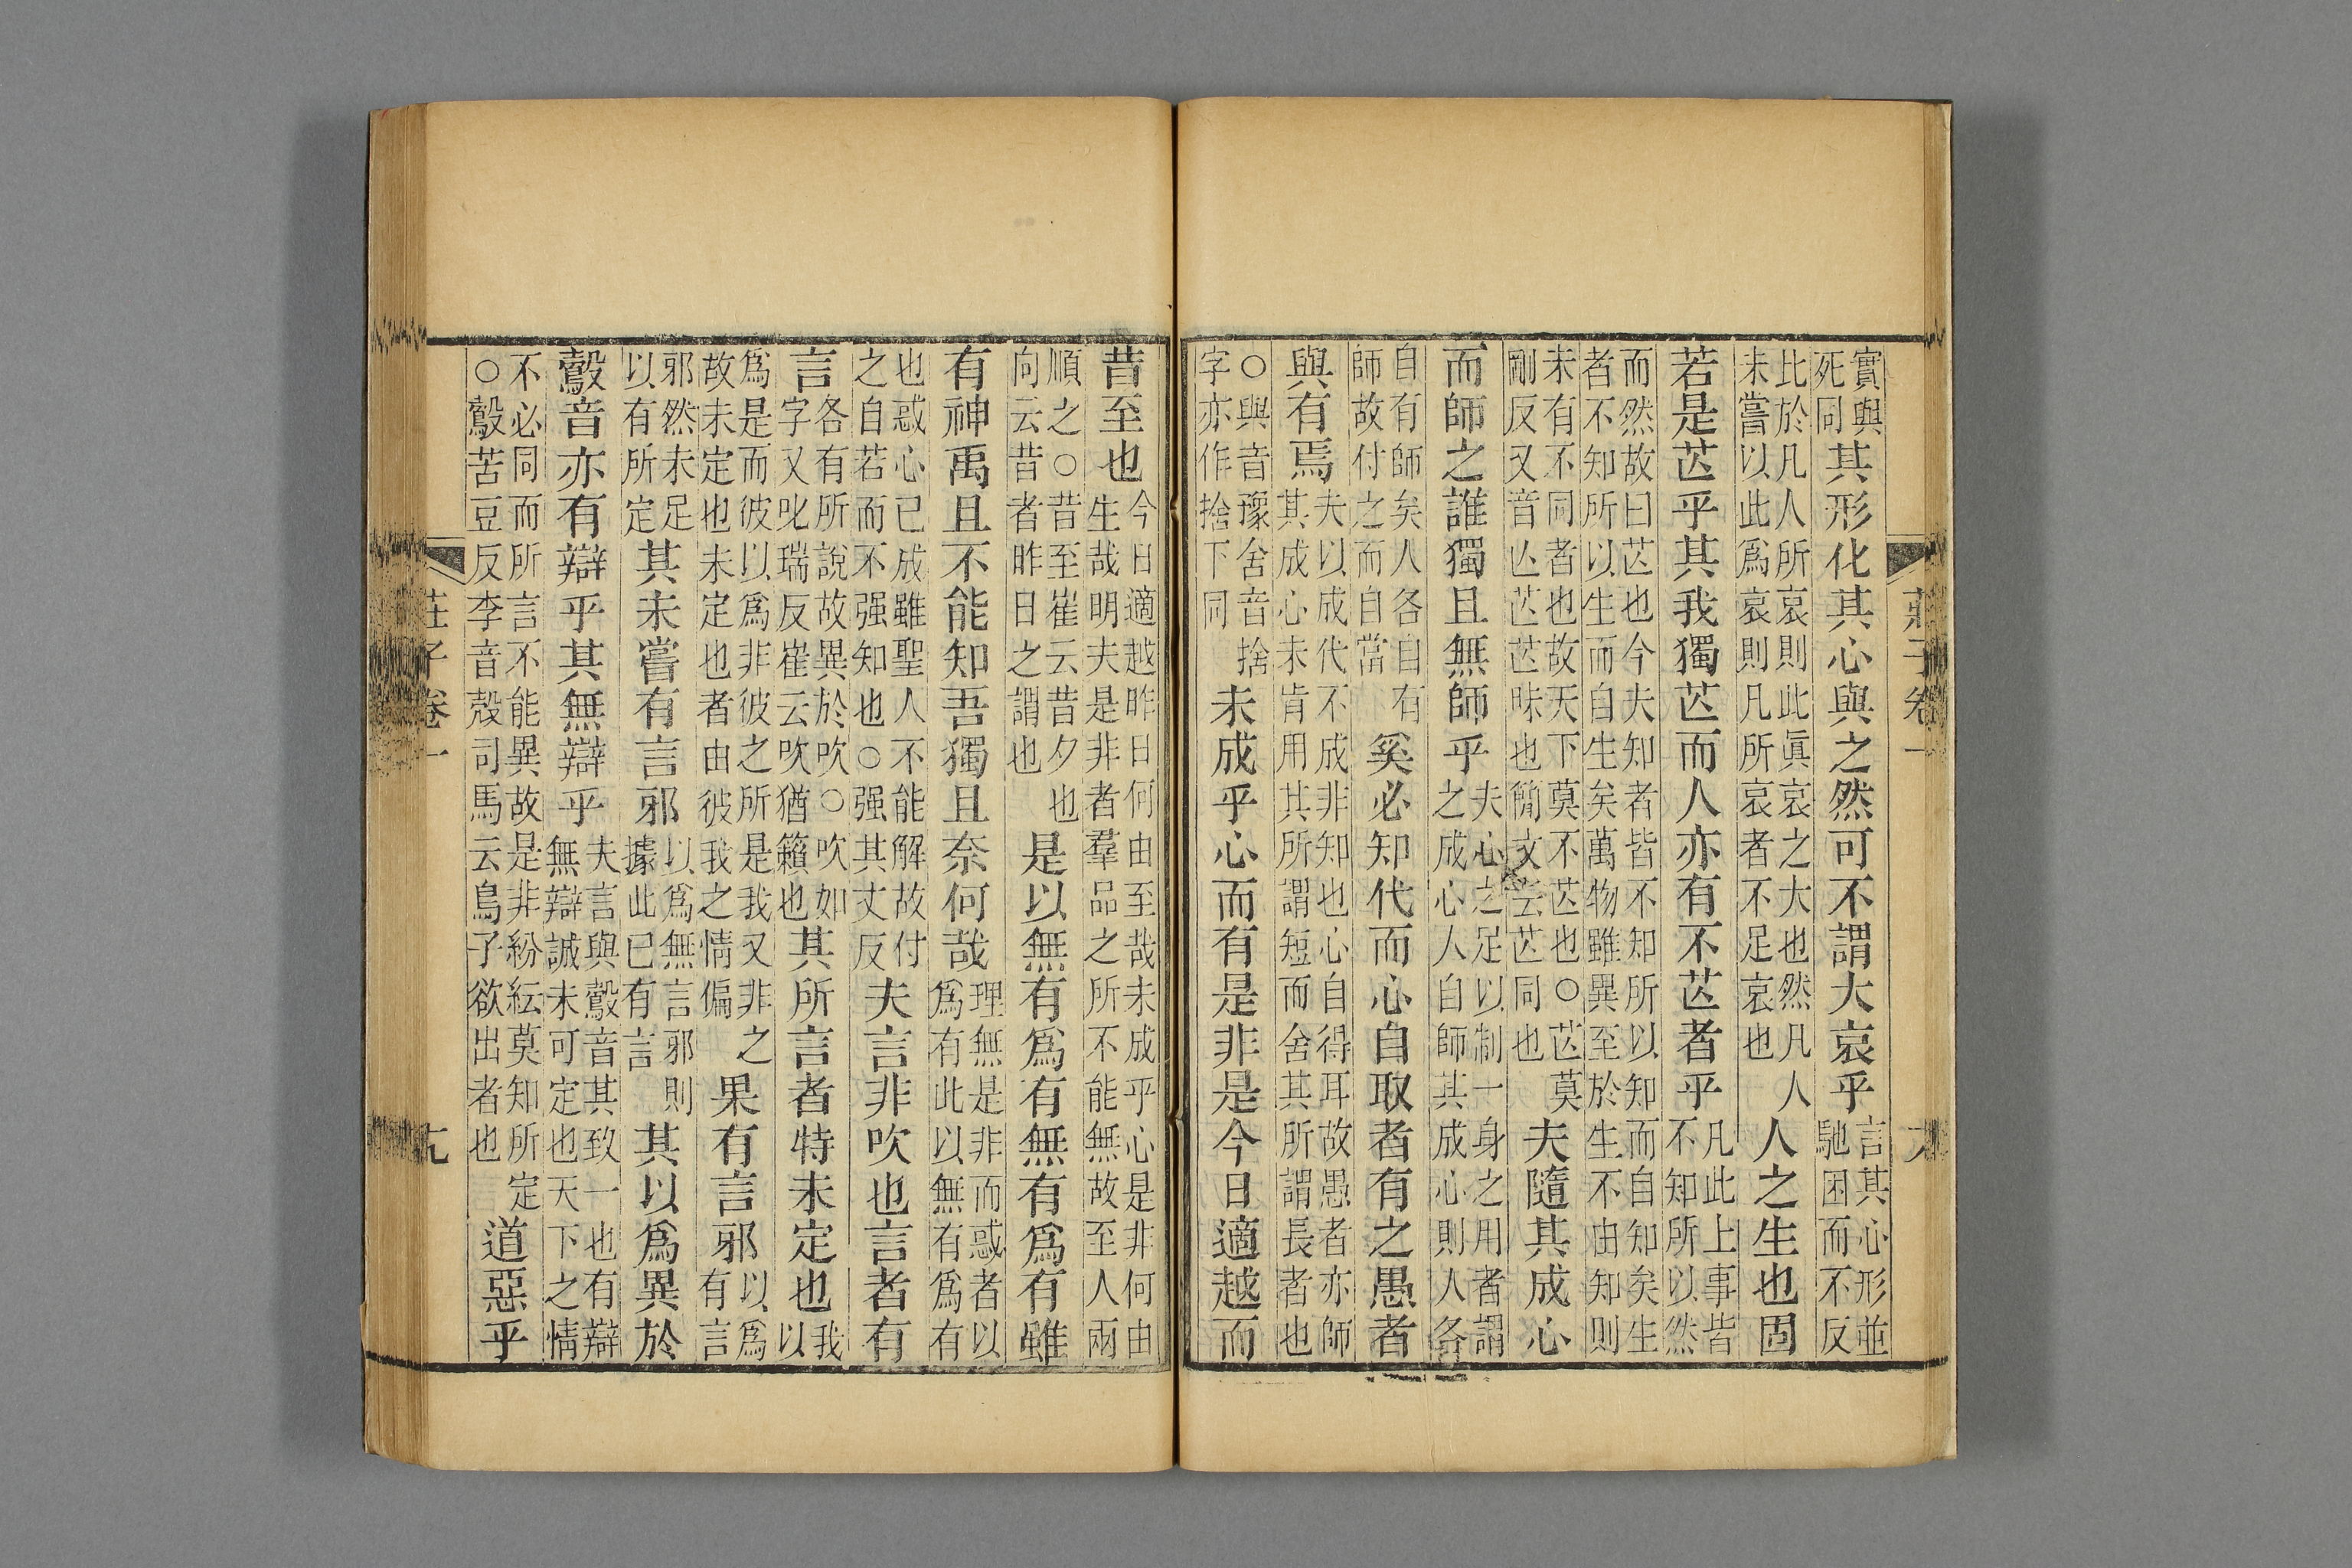 實與死同其形化其心與之然可不謂大哀乎言其心形並馳困而不反
比於凡人所哀則此眞哀之大也然凡人未嘗以此爲哀則凡所哀者不足哀也人之生也固
若是芒乎其我獨芒而人亦有不芒者乎凡此上事皆不知所以然
而然故曰芒也今夫知者皆不知所以知而自知矣生者不知所以生而自生矣萬物雖異至於生不由知則
未有不同者也故天下莫不芒也○芒莫剛反又音亡芒芒昧也簡文云芒同也夫隨其成心
而師之誰獨且無師乎夫心之足以制一身之用者謂之成心人自師其成心則人各
自有師矣人各自有師故付之而自當奚必知代而心自取者有之愚者
與有焉夫以成代不成非知也心自得耳故愚者亦師其成心未肯用其所謂短而舍其所謂長者也
○與音豫舍音捨字亦作捨下同未成乎心而有是非是今日適越而
莊子卷一
昔至也今日適越昨日何由至哉未成乎心是非何由生哉明夫是非者羣品之所不能無故至人兩
順之○昔至崔云昔夕也向云昔者昨日之謂也是以無有爲有無有爲有雖
有神禹且不能知吾獨且奈何哉理無是非而惑者以爲有此以無有爲有
也惑心已成雖聖人不能解故付之自若而不强知也○强其丈反夫言非吹也言者有
言各有所說故異於吹○吹如字又叱瑞反崔云吹猶籟也其所言者特未定也我以
爲是而彼以爲非彼之所是我又非之故未定也未定也者由彼我之情偏果有言邪以爲有言
邪然未足以有所定其未嘗有言邪以爲無言邪則據此已有言其以爲異於
鷇音亦有辯乎其無辯乎夫言與鷇音其致一也有辯無辯誠未可定也天下之情
不必同而所言不能異故是非紛紜莫知所定○鷇苦豆反李音殼司馬云鳥子欲出者也道惡乎
莊子卷一
九